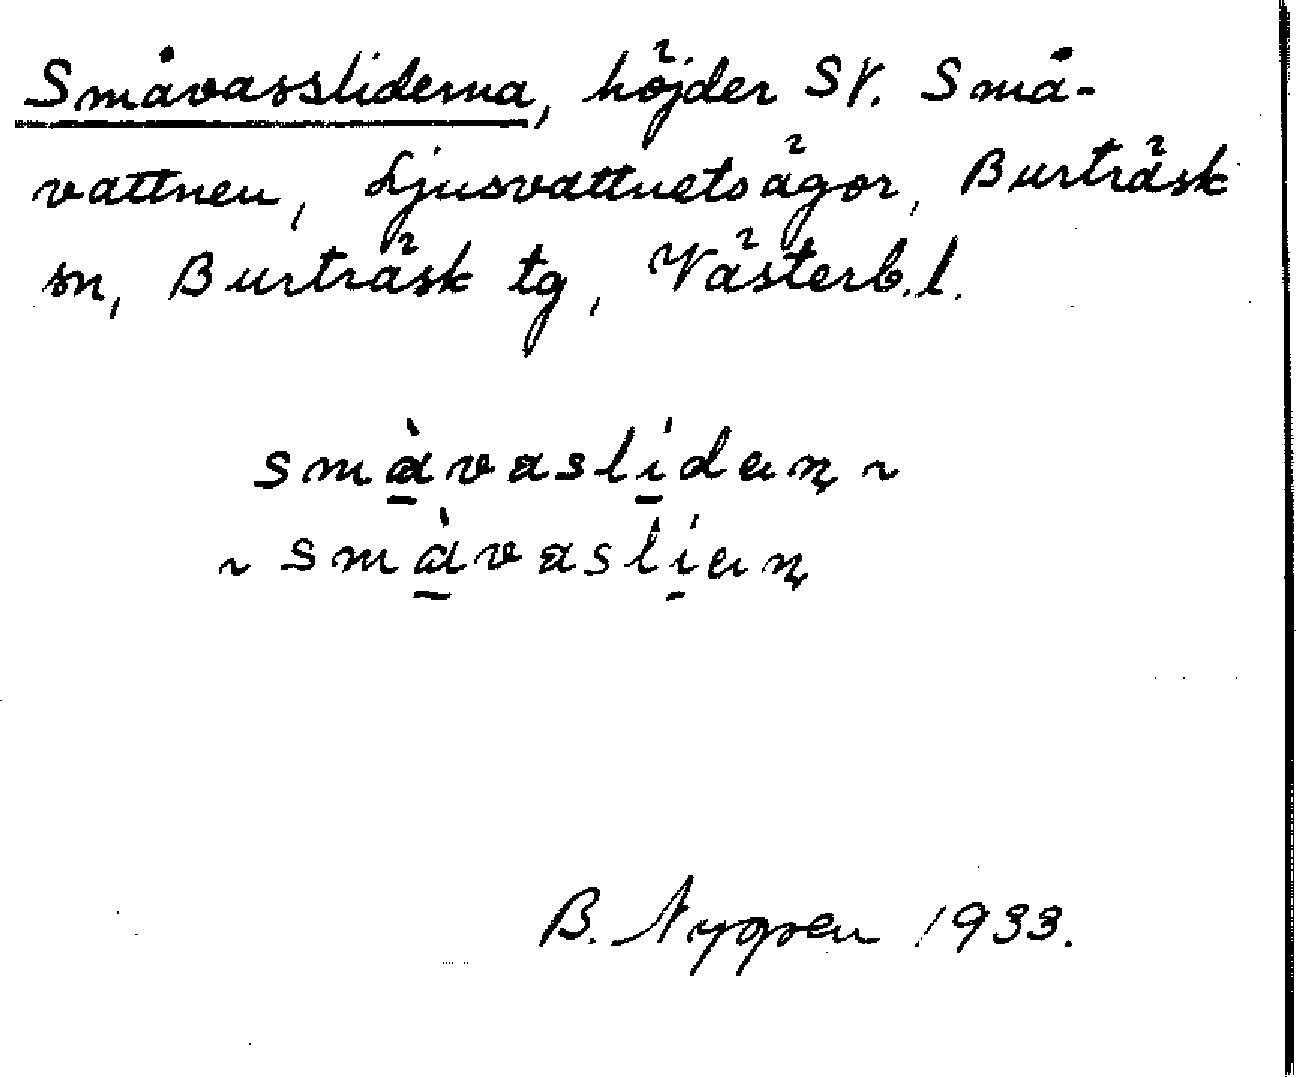 Småvassliderna, höjder SV. Små-
vattnen, Ljusvattnets ägor, Burträsk
sn, Burträsk tg, Västerb. l.
småvaslidern ~
~ småvasliern
B. Nygren 1933.